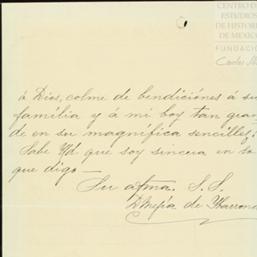 CENTRO DE
ESTUDIOS
DE HISTORIA
DE MÉXICO
FUNDACIÓN
Carlos
á Dios, colme de bendiciónes á su
familia y á mi boy tan gran
de en su magnífica sencillez.
Sabe Ud que soy sincera en lo
que digo —
Su atma. S. S.
D Mejía de